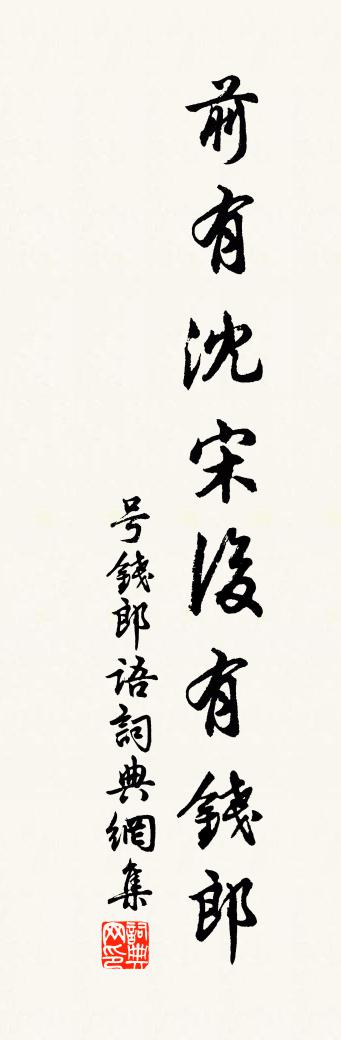 前有沈宋後有錢郎
号錢郎语詞典網集
詞典网印